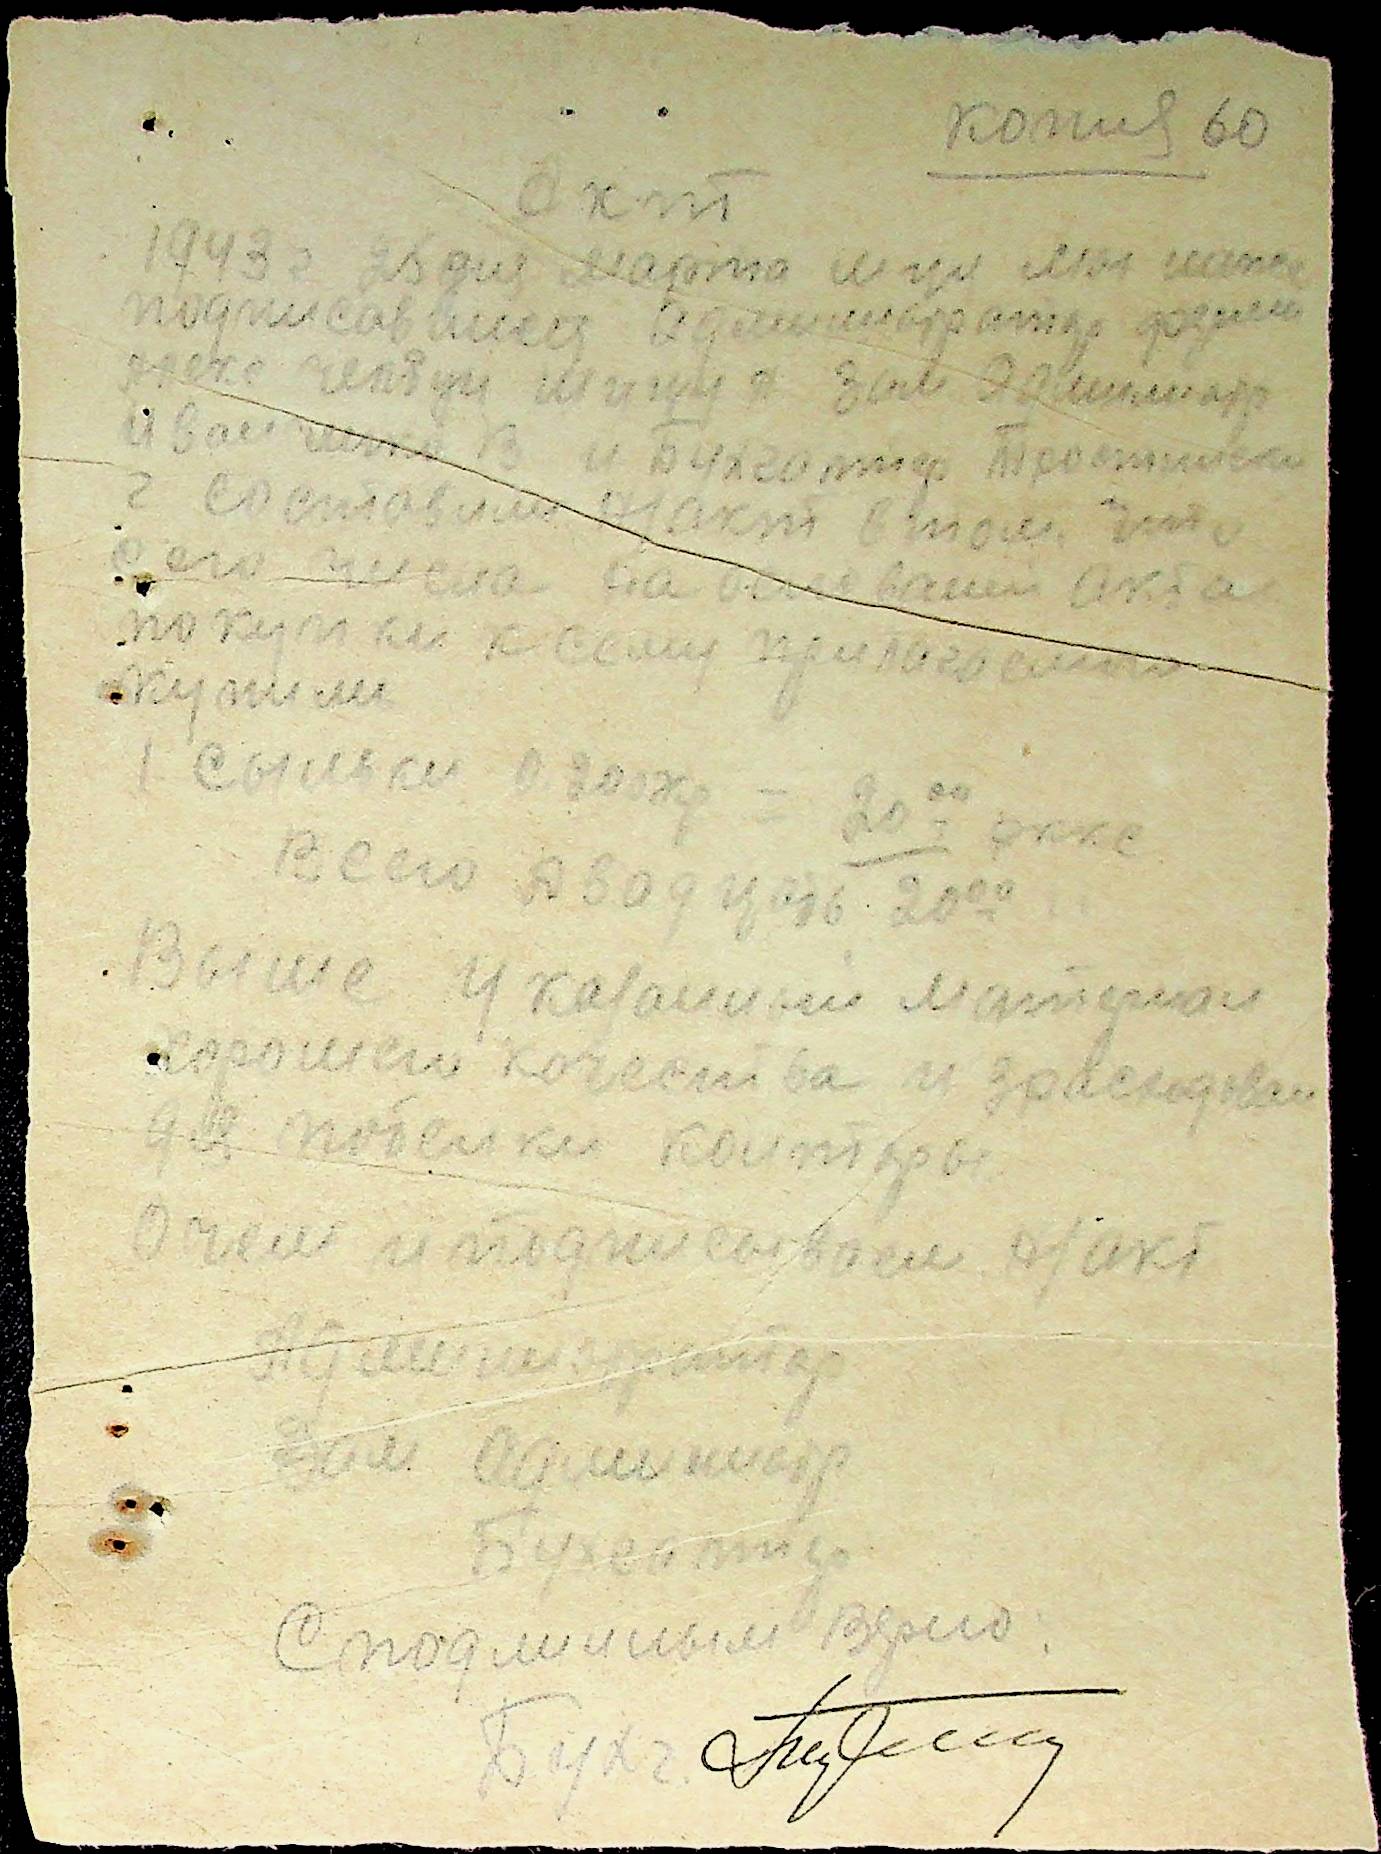 копия 60
Акт
1943 г 25 дня марта м-ця мы ниже
подписавшиеся Администратор
Зам Администр
Иванченко В и Бухгалтер
г составили н/акт в том что
сего числа на основании акта
покупки к сему прилагаемый
купили
1 Сыньки 0.200 = 20 00
Всего двадцать 20 00 "
Выше указанный материал
хорошего качества и зрасходован
для побелки конторы
О чем и подписываем н/акт
Администратор
Зам Администр
Бухгалтер
С подлинным верно:
Бухг.